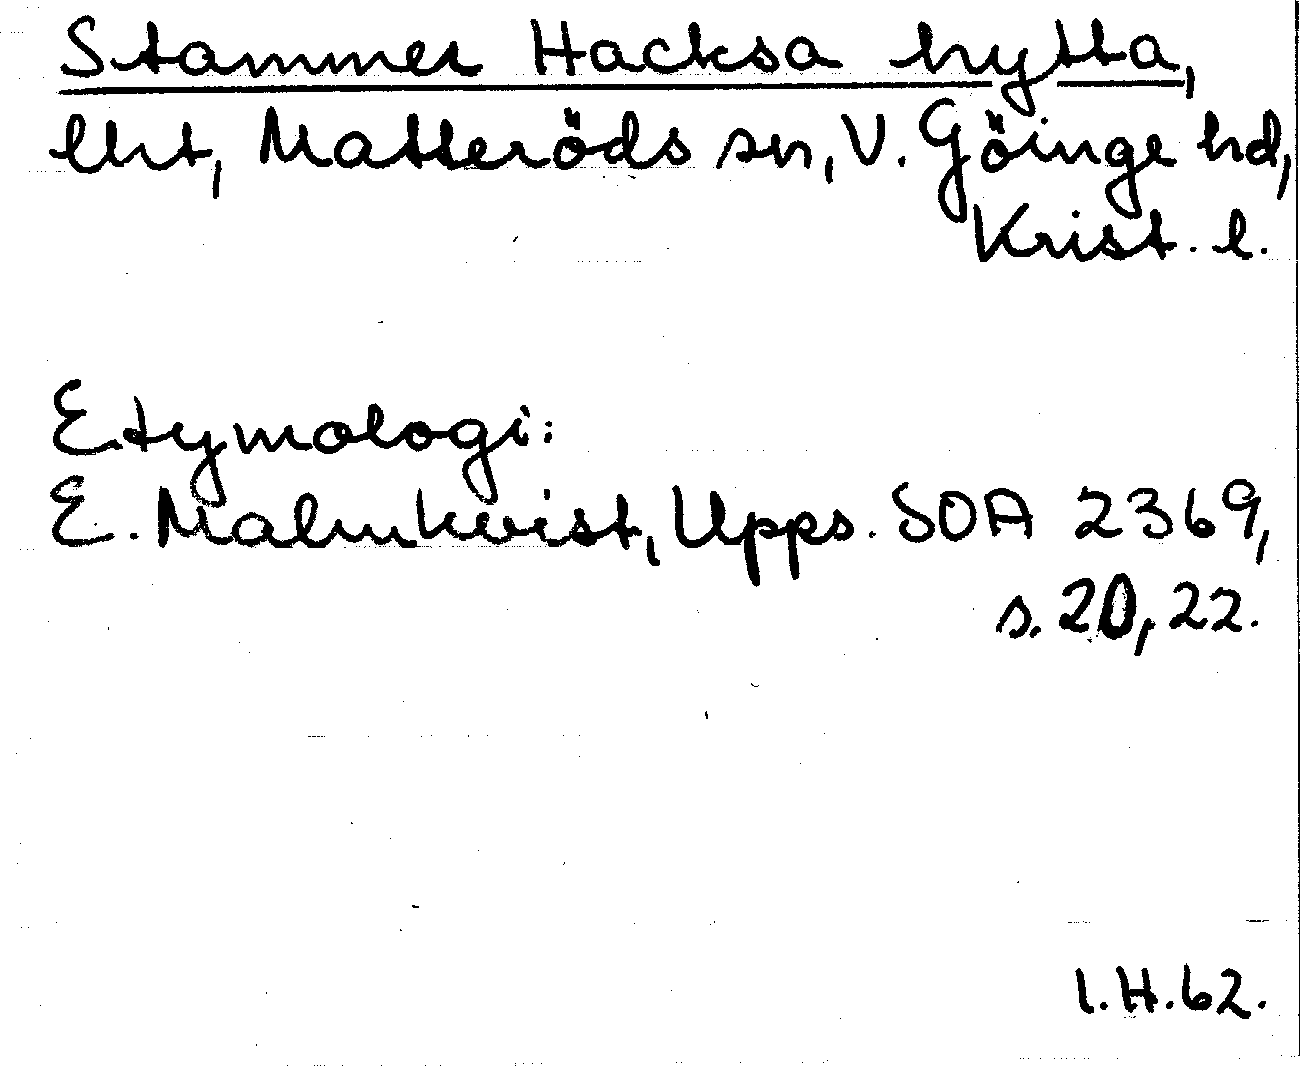 Stammer Hacksa hytta,
lht, Matteröds sn, V. Göinge hd,
Krist. l.
Etymologi:
E. Malmkvist, Upps. SOA 2369,
s. 20, 22.
I.H.62.